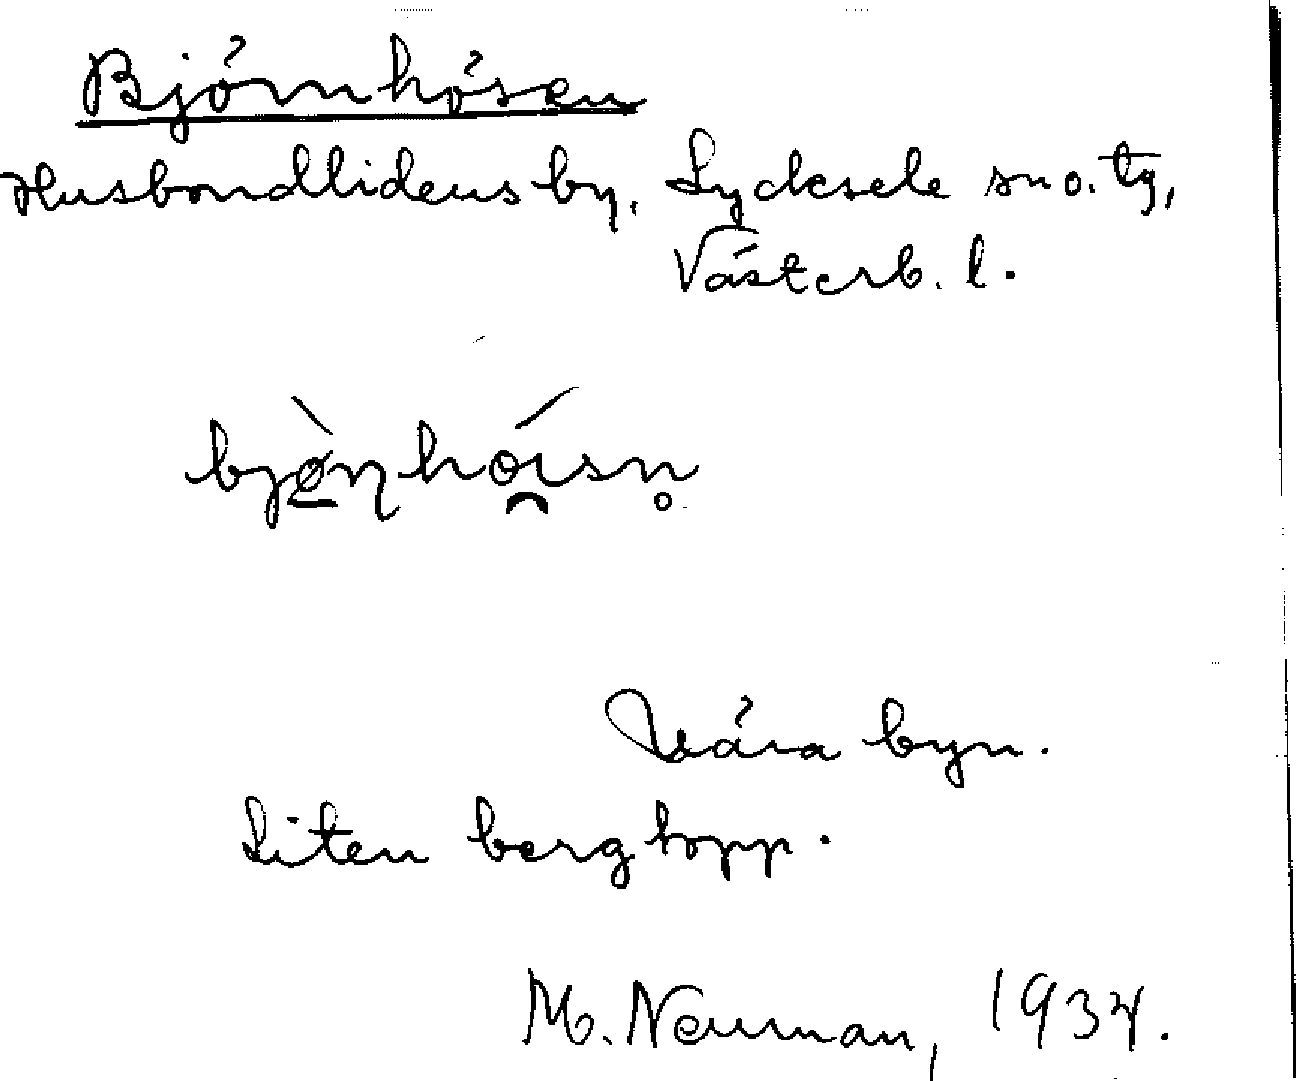 Björnhösen
Husbondlidens by, Lycksele sn o. tg,
Västerb. l.
Nära byn.
Liten bergtopp.
M. Neuman, 1937.